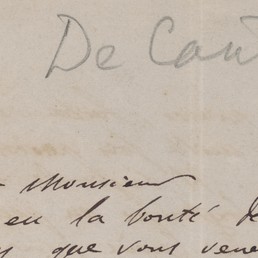 De Cau
Monsieur
eu la bonté de
que vous vene